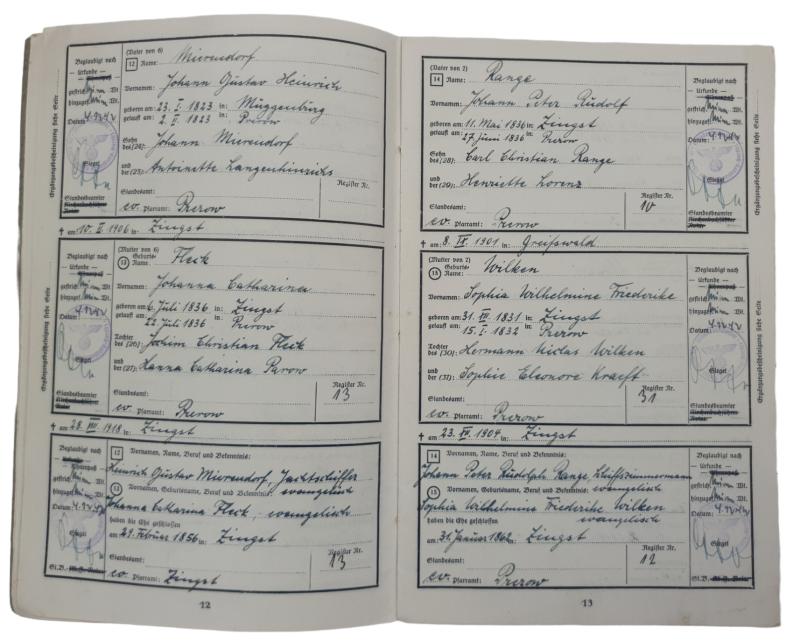 (Vater von 6)
12 Name: Mierendorf
Vornamen: Johann Gustav Heinrich
geboren am: 23. I. 1823 in: Müggenburg
getauft am: 2. II. 1823 Prerow
Sohn
des (24): Johann Mierendorf
und
der (25): Antoinette Langenhinrichs
Standesamt:
Register Nr.
ev. Pfarramt: Prerow
Beglaubigt nach
Urkunde
gestrich.
hinzugef.
Wt.
Wt.
Datum: 4.12.42
Siegel
Standesbeamter
Kirchenbuchführer
Notar
Ergänzungsbescheinigung siehe Seite
† am: 10. II. 1906 in: Zingst
(Mutter von 6)
Geburts-
13 Name: Fleck
Vornamen: Johanna Catharina
geboren am: 6. Juli 1836 in: Zingst
getauft am: 22. Juli 1836 Prerow
Tochter
des (26): Jochim Christian Fleck
und
der (27): Hanna Catharina Parow
Standesamt:
Register Nr.
13
ev. Pfarramt: Prerow
Beglaubigt nach
Urkunde
gestrich.
hinzugef.
Wt.
Wt.
Datum: 4.12.42
Siegel
Standesbeamter
Kirchenbuchführer
Notar
Ergänzungsbescheinigung siehe Seite
† am: 28. VII. 1918 in: Zingst
12 Vornamen, Name, Beruf und Bekenntnis:
Heinrich Gustav Mierendorf, Jachtschiffer
evangelisch
13 Vornamen, Geburtsname, Beruf und Bekenntnis:
Johanna Catharina Fleck, evangelisch
haben die Ehe geschlossen
am: 29. Februar 1856 in: Zingst
Standesamt:
Register Nr.
13
ev. Pfarramt: Zingst
Beglaubigt nach
Urkunde
gestrich.
hinzugef.
Wt.
Wt.
Datum: 4.12.42
Siegel
St.B.
12
(Vater von 7)
14 Name: Range
Vornamen: Johann Peter Rudolf
geboren am: 11. Mai 1836 in: Zingst
getauft am: 27. Juni 1836 Prerow
Sohn
des (28): Carl Christian Range
und
der (29): Henriette Lorenz
Standesamt:
Register Nr.
10
ev. Pfarramt: Prerow
Beglaubigt nach
Urkunde
gestrich.
hinzugef.
Wt.
Wt.
Datum: 4.12.42
Siegel
Standesbeamter
Kirchenbuchführer
Notar
Ergänzungsbescheinigung siehe Seite
† am: 8. IV. 1901 in: Greifswald
(Mutter von 7)
Geburts-
15 Name: Wilken
Vornamen: Sophia Wilhelmine Friederike
geboren am: 31. XII. 1831 in: Zingst
getauft am: 15. I. 1832 Prerow
Tochter
des (30): Hermann Niclas Wilken
und
der (31): Sophie Eleonore Kraeft
Standesamt:
Register Nr.
31
ev. Pfarramt: Prerow
Beglaubigt nach
Urkunde
gestrich.
hinzugef.
Wt.
Wt.
Datum: 4.12.42
Siegel
Standesbeamter
Kirchenbuchführer
Notar
Ergänzungsbescheinigung siehe Seite
† am: 23. 1904 in: Zingst
14 Vornamen, Name, Beruf und Bekenntnis:
Johann Peter Rudolph Range, Schiffszimmermann
evangelisch
15 Vornamen, Geburtsname, Beruf und Bekenntnis:
Sophia Wilhelmina Friederike Wilken
evangelisch
haben die Ehe geschlossen
am: 31. Januar 1862 in: Zingst
Standesamt:
Register Nr.
12
ev. Pfarramt: Prerow
Beglaubigt nach
Urkunde
gestrich.
hinzugef.
Wt.
Wt.
Datum: 4.12.42
Siegel
St.B.
13